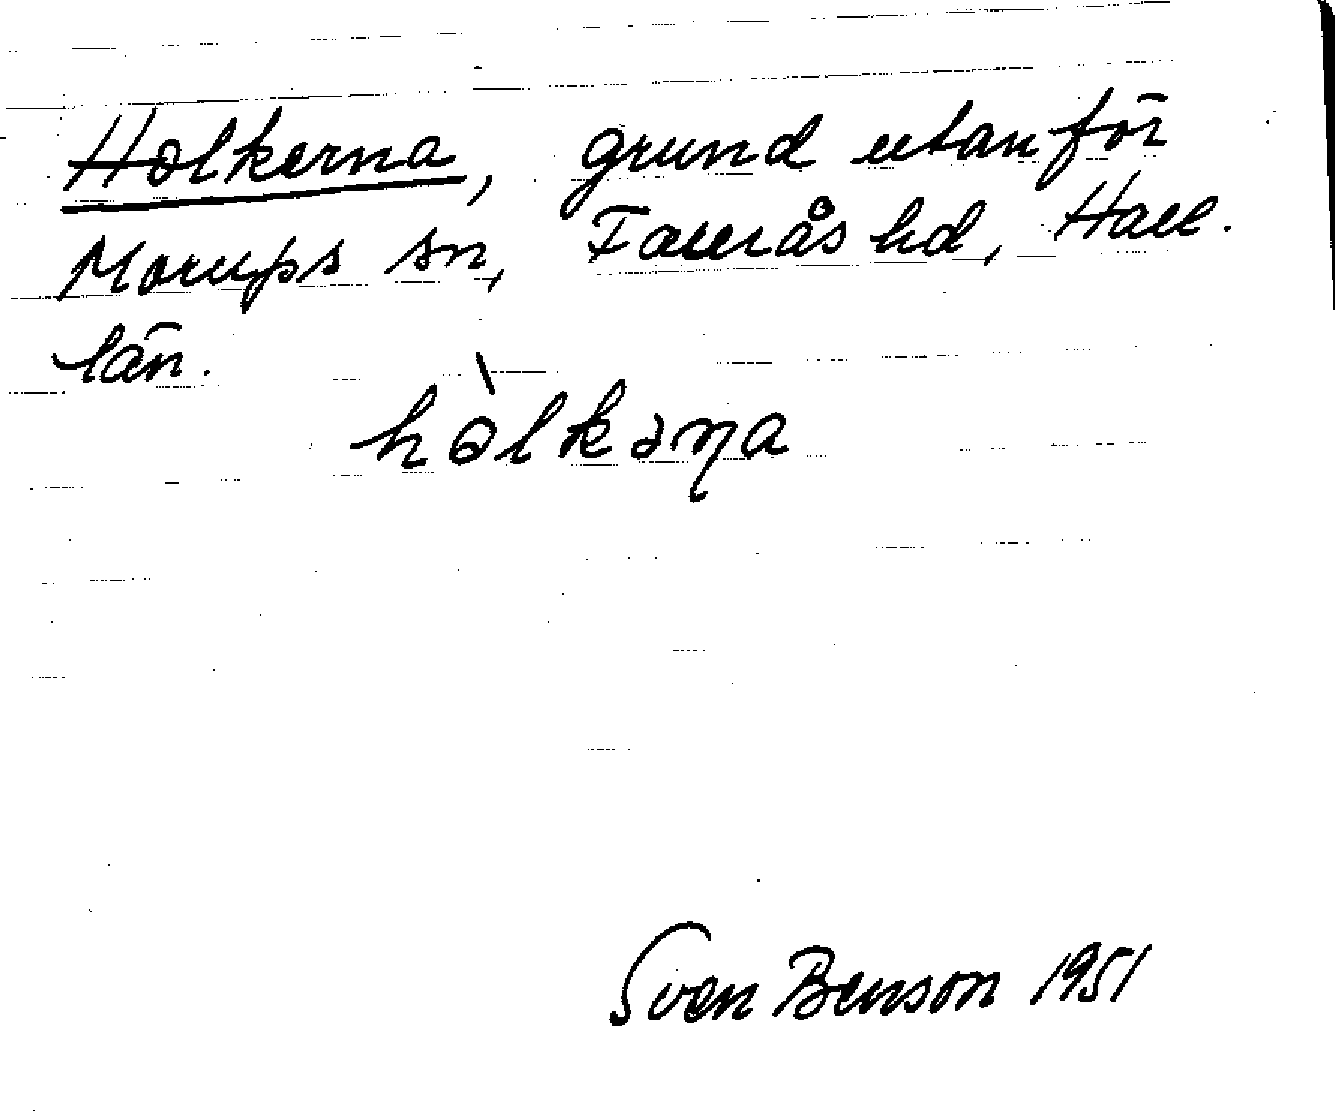 Holkerna, grund utanför
Morups sn, Faurås hd, Hall.
län.
hòlkəṇa
Sven Benson 1951